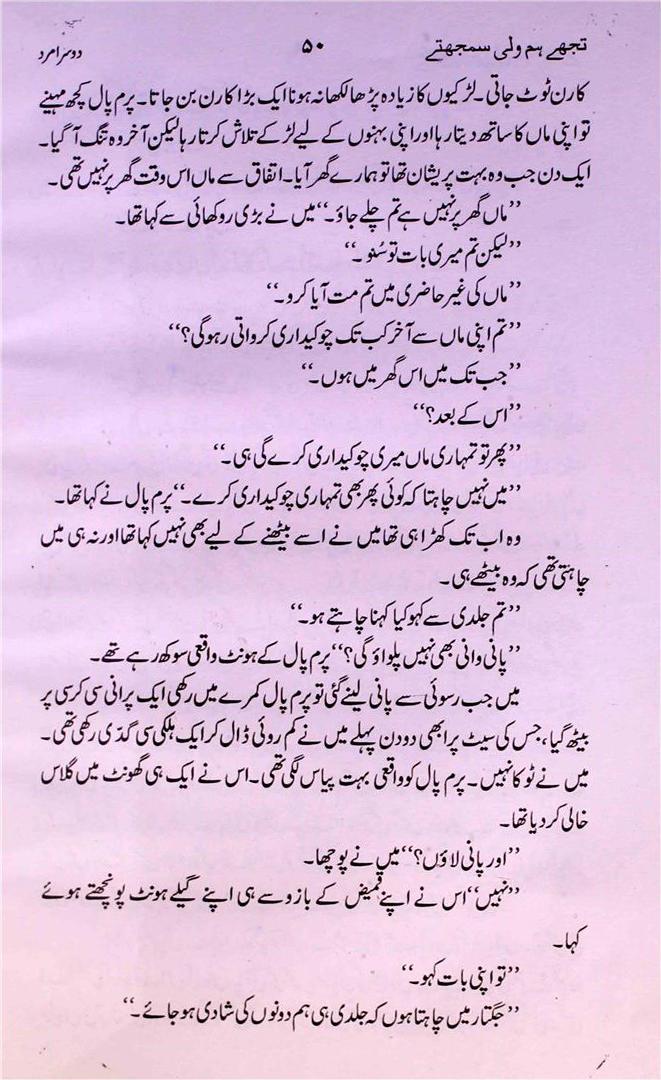 تجھے ہم ولی سمجھتے
۵۰
دوسرا مرد
کارن ٹوٹ جاتی۔ لڑکیوں کا زیادہ پڑھا لکھا نہ ہونا ایک بڑا کارن بن جاتا۔ پرم پال کچھ مہینے
تو اپنی ماں کا ساتھ دیتا رہا اور اپنی بہنوں کے لیے لڑکے تلاش کرتا رہا لیکن آخر وہ تنگ آ گیا۔
ایک دن جب وہ بہت پریشان تھا تو ہمارے گھر آیا۔ اتفاق سے ماں اس وقت گھر پر نہیں تھی۔
’’ماں گھر پر نہیں ہے تم چلے جاؤ۔‘‘ میں نے بڑی روکھائی سے کہا تھا۔
’’لیکن تم میری بات تو سُنو۔‘‘
’’ماں کی غیر حاضری میں تم مت آیا کرو۔‘‘
’’تم اپنی ماں سے آخر کب تک چوکیداری کرواتی رہو گی؟‘‘
’’جب تک میں اس گھر میں ہوں۔‘‘
’’اس کے بعد؟‘‘
’’پھر تو تمہاری ماں میری چوکیداری کرے گی ہی۔‘‘
’’میں نہیں چاہتا کہ کوئی پھر بھی تمہاری چوکیداری کرے۔‘‘ پرم پال نے کہا تھا۔
وہ اب تک کھڑا ہی تھا میں نے اسے بیٹھنے کے لیے بھی نہیں کہا تھا اور نہ ہی میں
چاہتی تھی کہ وہ بیٹھے ہی۔
’’تم جلدی سے کہو کیا کہنا چاہتے ہو۔‘‘
’’پانی وانی بھی نہیں پلواؤ گی؟‘‘ پرم پال کے ہونٹ واقعی سوکھ رہے تھے۔
میں جب رسوئی سے پانی لینے گئی تو پرم پال کمرے میں رکھی ایک پرانی سی کرسی پر
بیٹھ گیا، جس کی سیٹ پر ابھی دو دن پہلے میں نے کم روئی ڈال کر ایک ہلکی سی گدّی رکھی تھی۔
میں نے ٹوکا نہیں۔ پرم پال کو واقعی بہت پیاس لگی تھی۔ اس نے ایک ہی گھونٹ میں گلاس
خالی کر دیا تھا۔
’’اور پانی لاؤں؟‘‘ میں نے پوچھا۔
’’نہیں‘‘ اس نے اپنے قمیض کے بازو سے ہی اپنے گیلے ہونٹ پونچھتے ہوئے
کہا۔
’’تو اپنی بات کہو۔‘‘
’’جگتار میں چاہتا ہوں کہ جلدی ہی ہم دونوں کی شادی ہو جائے۔‘‘